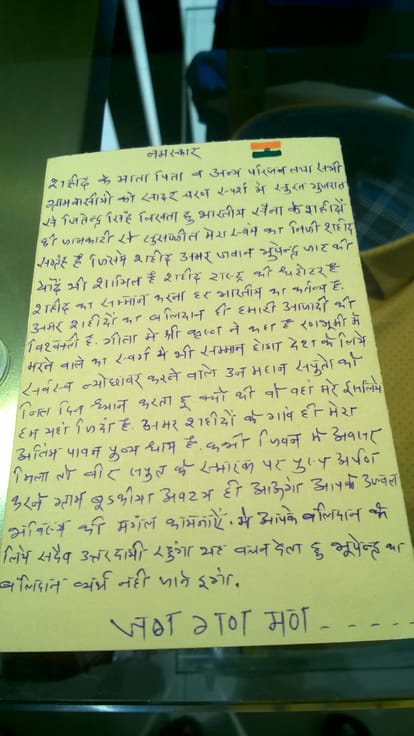 नमस्कार
शहीद के माता पिता व अन्य परिजन तथा सभी
ग्रामवासीयो को सादर चरण स्पर्श मे सुरत गुजरात
से जितेन्द्र सिंह लिखता हु भारतीय सैना के शहीदों
की जानकारी से मेरा स्वंय का निजी शहीद
संग्रह है जिसमे शहीद अमर जवान भुपेन्द्र जाट की
यादे भी शामिल है शहीद राष्ट्र की धरोहर है
शहीद का सम्मान करना हर भारतीय का कर्तव्य है.
अमर शहीदों का बलिदान ही हमारी आजादी की
है. गीता मे श्री कृष्ण ने कहा है रणभूमी मे
मरने वाले का स्वर्ग मे भी सम्मान होगा देश के लिये
सर्वस्व न्योछावर करने वाले उन महान सपुतो को
नित दिन ध्यान करता हु क्यो की वो वहां मरे इसलिये
हम यहां जिंदा है. अमर शहीदों के गांव ही मेरा
अंतिम पावन पुण्य धाम है. कभी जिवन मे अवसर
मिला तो वीर सपुत के स्मारक पर पुष्प अर्पण
करने ग्राम अवश्य ही आऊंगा आपके उज्वल
भविष्य की मंगल कामनाऐं. मे आपके बलिदान के
लिये सदैव उत्तरदायी रहुंगा यह वचन देता हु भूपेन्द्र का
बलिदान व्यर्थ नही जाने दुंगा.
जन गण मन - - - - - -